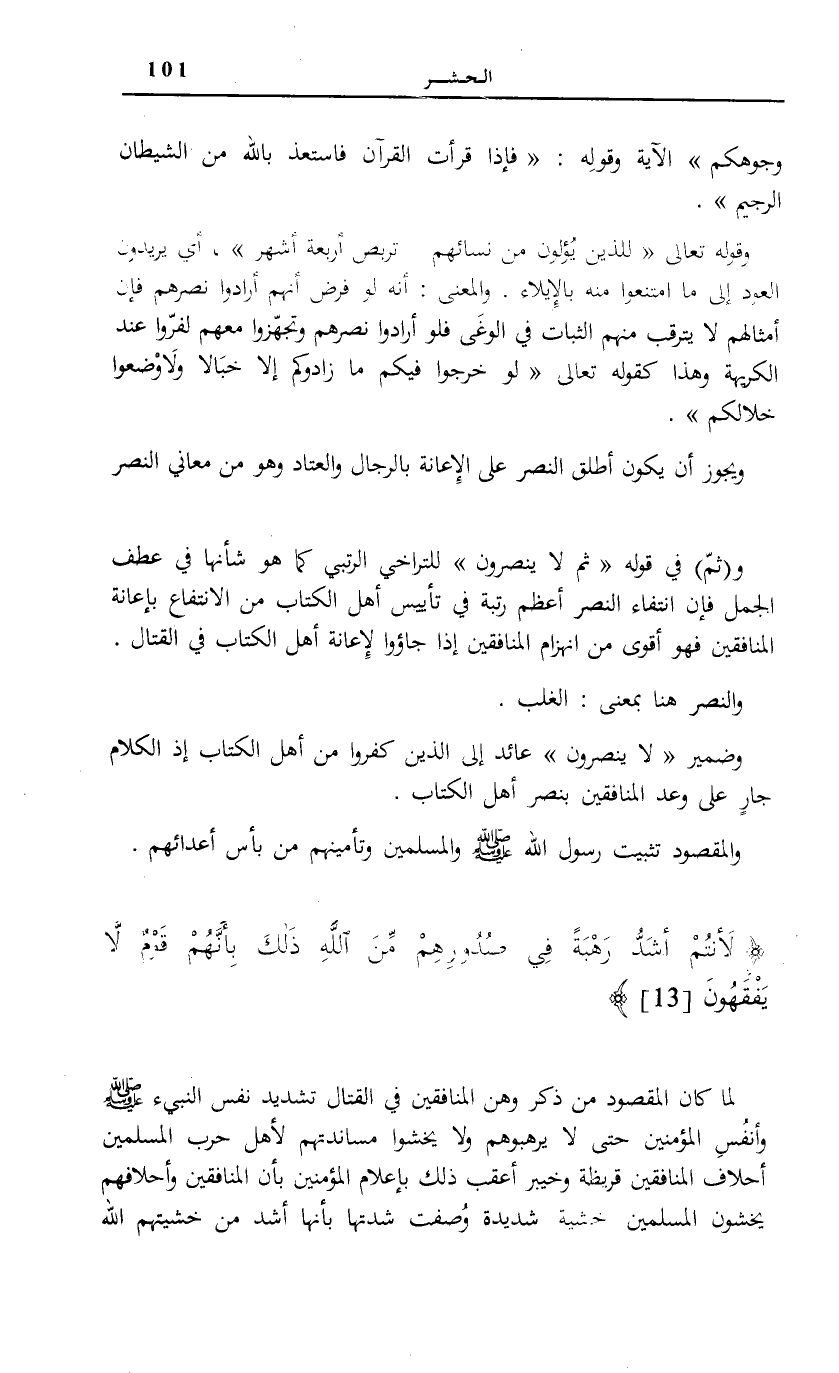 الحشر 101
وجوهكم » الآية وقولِه : « فإذا قرأت القرآن فاستعذ بالله من الشيطان
الرجيم » .
وقوله تعالى « للذين يُؤلون من نسائهم تربص أربعة أشهر » ، أي يريدون
العود إلى ما امتنعوا منه بالإيلاء . والمعنى : أنه لو فرض أنهم أرادوا نصرهم فإن
أمثالهم لا يترقب منهم الثبات في الوغَى فلو أرادوا نصرهم وتجهّزوا معهم لفرّوا عند
الكريهة وهذا كقوله تعالى « لو خرجوا فيكم ما زادوكم إلا خبَالا ولَاوْضعوا
خلالكم » .
ويجوز أن يكون أطلق النصر على الإعانة بالرجال والعتاد وهو من معاني النصر
و(ثمّ) في قوله « ثم لا ينصرون » للتراخي الرتبي كما هو شأنها في عطف
الجمل فإن انتفاء النصر أعظم رتبة في تأييس أهل الكتاب من الانتفاع بإعانة
المنافقين فهو أقوى من انهزام المنافقين إذا جاؤوا لإعانة أهل الكتاب في القتال .
والنصر هنا بمعنى : الغلب .
وضمير « لا ينصرون » عائد إلى الذين كفروا من أهل الكتاب إذ الكلام
جارٍ على وعد المنافقين بنصر أهل الكتاب .
والمقصود تثبيت رسول الله ﷺ والمسلمين وتأمينهم من بأس أعدائهم .
﴿ لَأَنتُمْ أَشَدُّ رَهْبَةً فِي صُدُورِهِمْ مِّنَ ٱللَّهِ ذَٰلِكَ بِأَنَّهُمْ قَوْمٌ لَّا
يَفْقَهُونَ [13] ﴾
لما كان المقصود من ذكر وهن المنافقين في القتال تشديد نفس النبيء ﷺ
وأنفُسِ المؤمنين حتى لا يرهبوهم ولا يخشوا مساندتهم لأهل حرب المسلمين
أحلاف المنافقين قريظة وخيبر أعقب ذلك بإعلام المؤمنين بأن المنافقين وأحلافهم
يخشون المسلمين خشية شديدة وُصفت شدتها بأنها أشد من خشيتهم الله